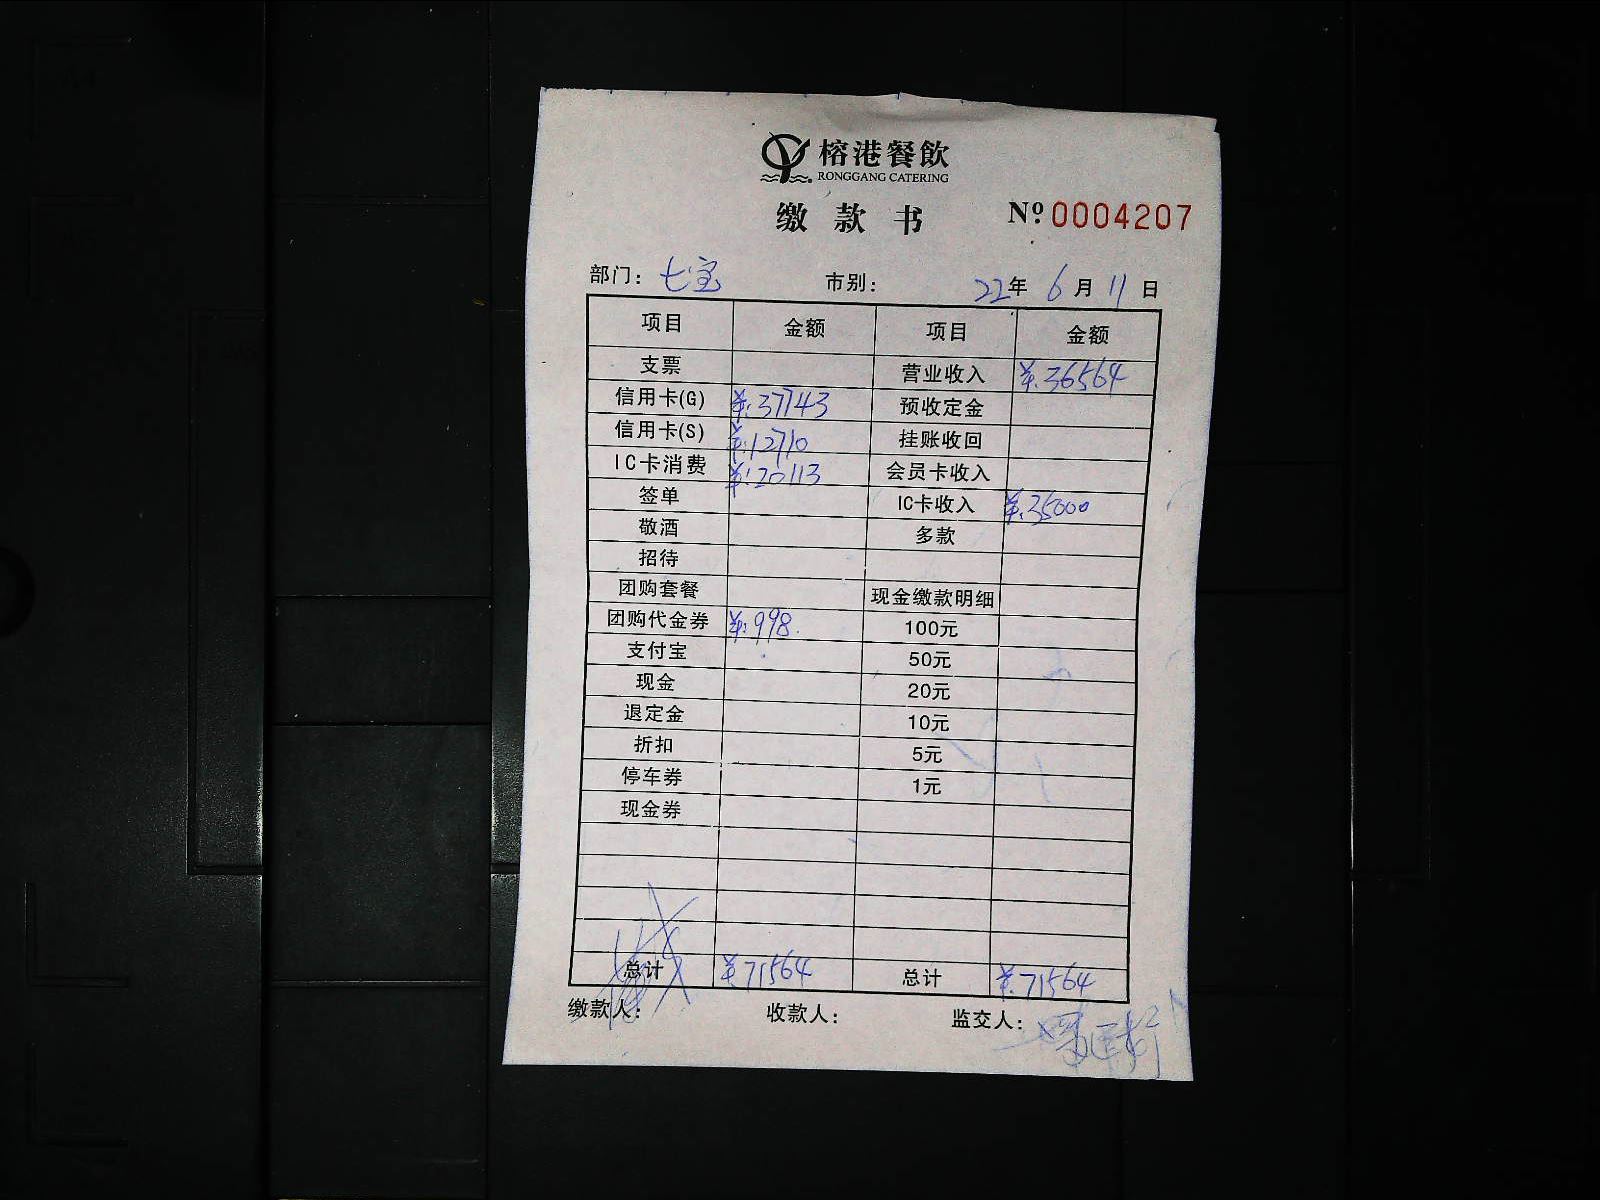 榕港餐飲
RONGGANG CATERING
缴款书 Nº 0004207
部门：七宝 市别： 22年 6月 11日
项目 金额 项目 金额
支票 营业收入 ¥:36564
信用卡(G) ¥:37743 预收定金
信用卡(S) ¥:12710 挂账收回
IC卡消费 ¥:20113 会员卡收入
签单 IC卡收入 ¥:35000
敬酒 多款
招待
团购套餐 现金缴款明细
团购代金券 ¥:998. 100元
支付宝 50元
现金 20元
退定金 10元
折扣 5元
停车券 1元
现金券
总计 ¥71564 总计 ¥:71564
缴款人： 收款人： 监交人：